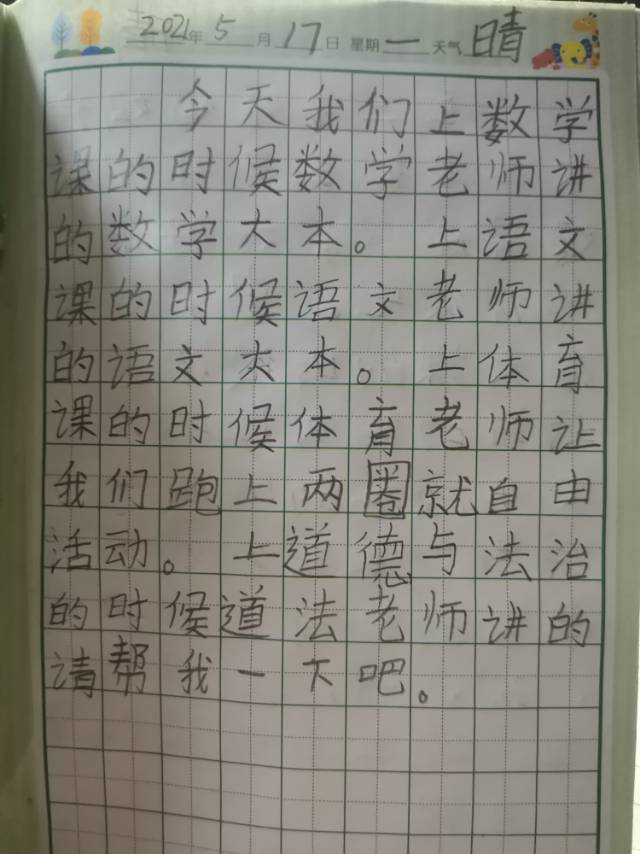 2021年5月17日 星期一 天气 晴
今天我们上数学
课的时候数学老师讲
的数学大本。上语文
课的时候语文老师讲
的语文大本。上体育
课的时候体育老师让
我们跑上两圈就自由
活动。上道德与法治
的时候道法老师讲的
请帮我一下吧。